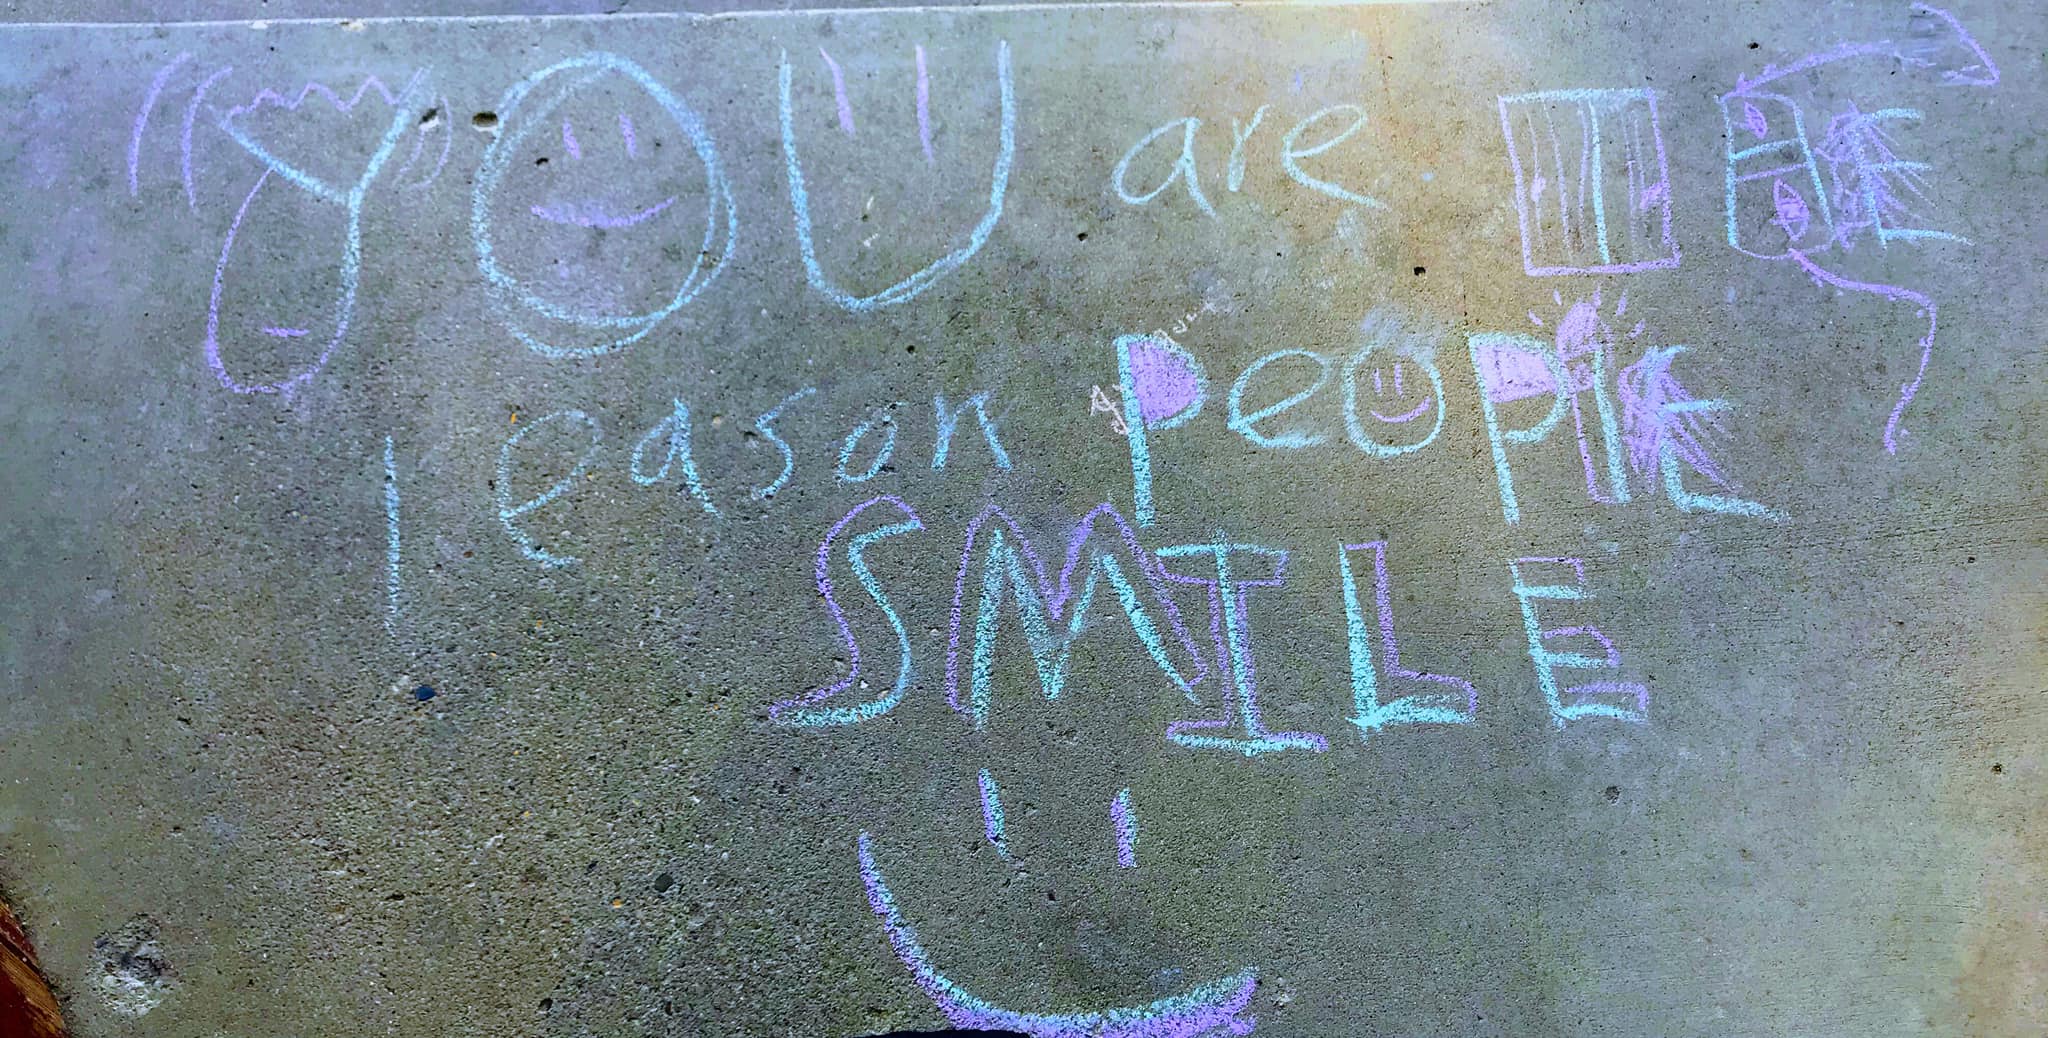 YOU are THE
reason people
SMILE